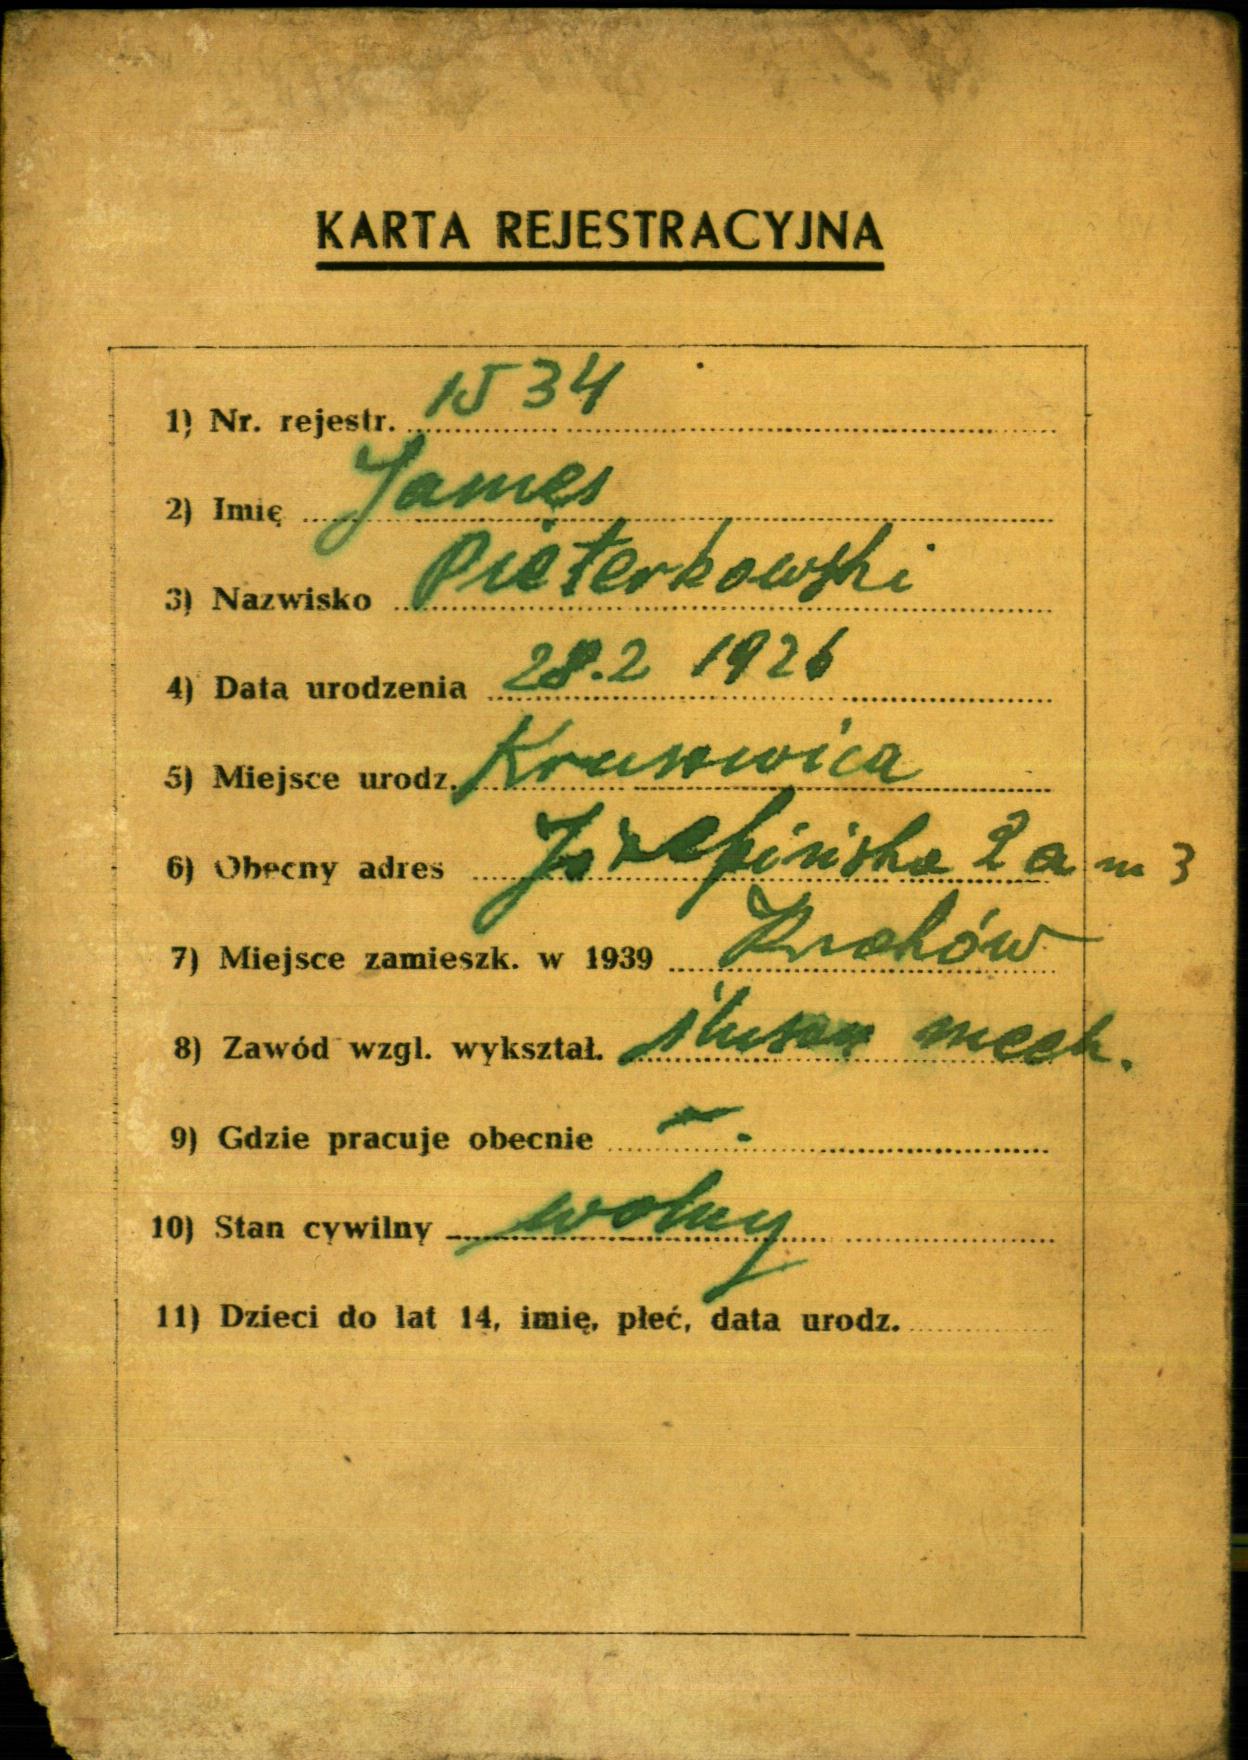 KARTA REJESTRACYJNA
1) Nr. rejestr. 1534
2) Imię James
3) Nazwisko Pieterkowski
4) Data urodzenia 28.2 1926
5) Miejsce urodz. Kruszwica
6) Obecny adres Józefińska 2a m 3
7) Miejsce zamieszk. w 1939 Kraków
8) Zawód wzgl. wykształ. ślusarz mech.
9) Gdzie pracuje obecnie — .
10) Stan cywilny wolny
11) Dzieci do lat 14, imię, płeć, data urodz.